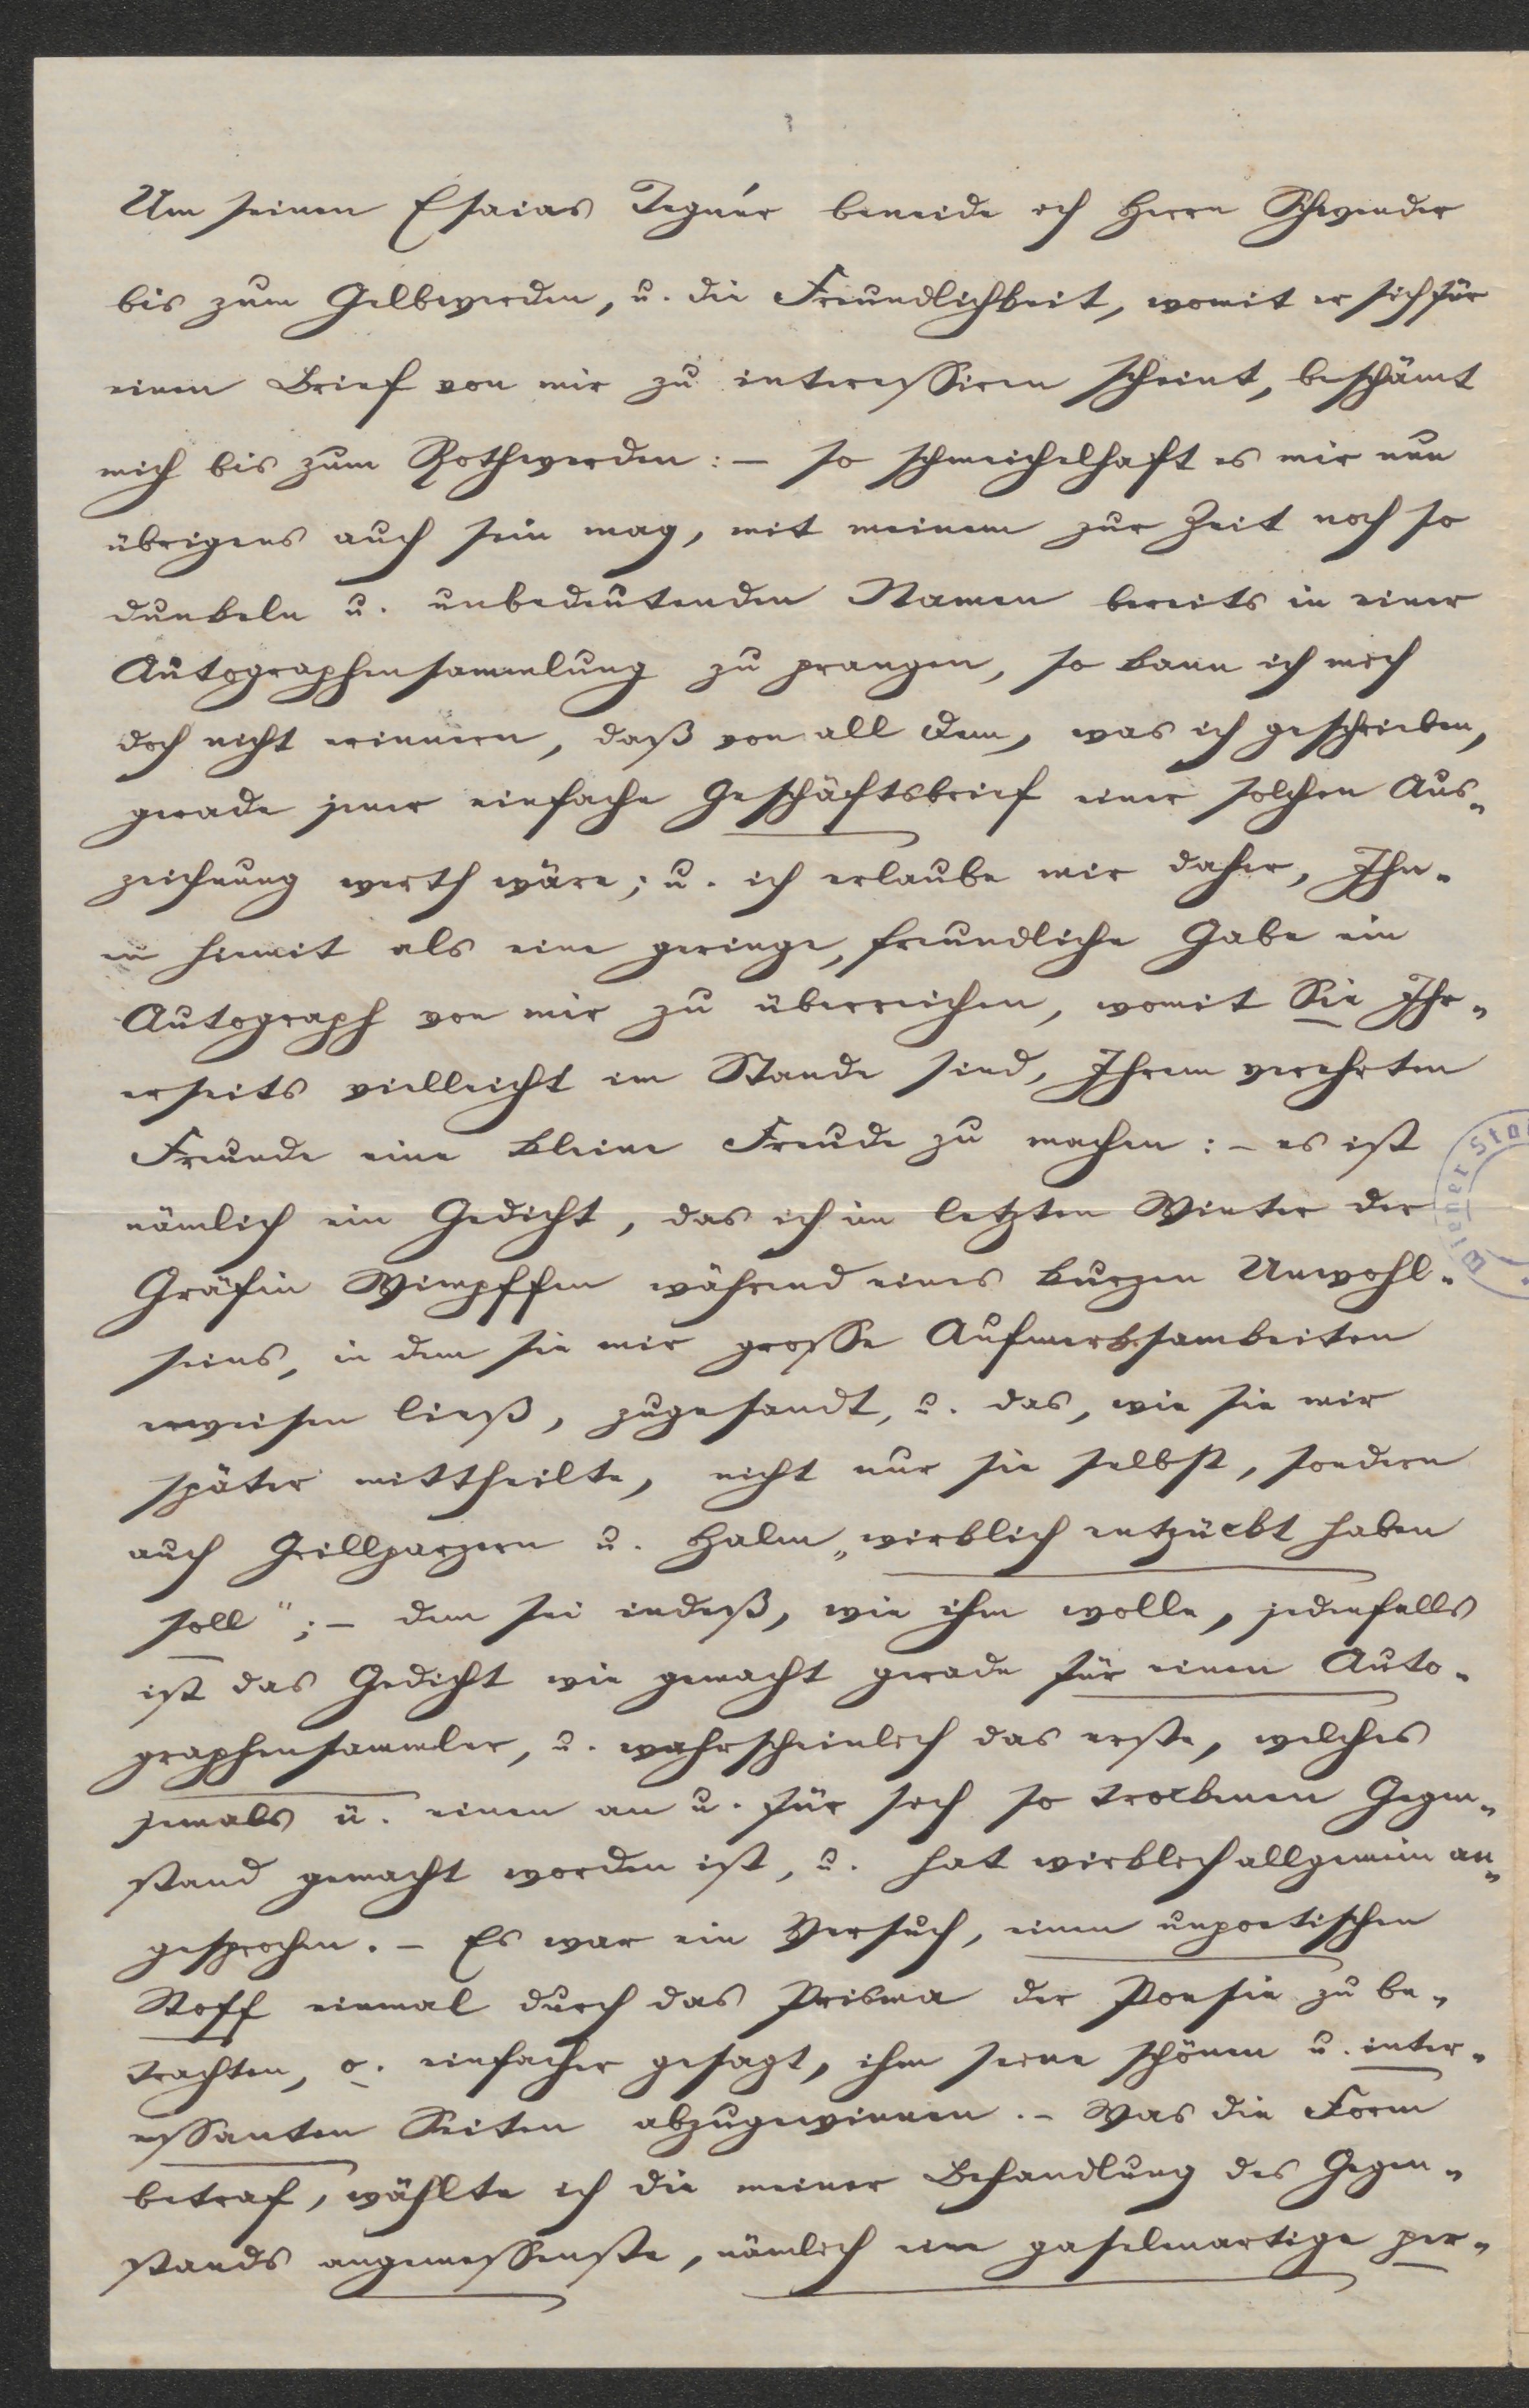 Um seinen Esaias Tegnér beneide ich Herrn Schwender
bis zum Gelbwerden, u. die Freundlichkeit, womit er sich für
einen Brief von mir zu interessiren scheint, beschämt
mich bis zum Rothwerden: – so schmeichelhaft es mir nun
übrigens auch sein mag, mit meinem zur Zeit noch so
dunkeln u. unbedeutenden Namen bereits in einer
Autographensammlung zu prangen, so kann ich mich
doch nicht erinnern, daß von all dem, was ich geschrieben,
gerade jener einfache Geschäftsbrief einer solchen Aus„
zeichnung werth wäre; u. ich erlaube mir daher, Ihn„
en hiemit als eine geringe, freundliche Gabe ein
Autograph von mir zu überreichen, womit Sie Ihr„
erseits vielleicht im Stande sind, Ihrem verehrten
Freunde eine kleine Freude zu machen: – es ist
nämlich ein Gedicht, das ich im letzten Winter der
Gräfin Wimpffen während eines kurzen Unwohl„
seins, in dem sie mir grosse Aufmerksamkeiten
erweisen ließ, zugesandt, u. das, wie sie mir
später mittheilte, nicht nur sie selbst, sondern
auch Grillparzern u. Halm „wirklich entzückt haben
soll“; – dem sei indeß, wie ihm wolle, jedenfalls
ist das Gedicht wie gemacht gerade für einen Auto„
graphensammler, u. wahrscheinlich das erste, welches
jemals ü. einen an u. für sich so trockenen Gegen„
stand gemacht worden ist, u. hat wirklich allgemein an„
gesprochen. – Es war ein Versuch, einen unpoetischen
Stoff einmal durch das Prisma der Poesie zu be„
trachten, o. einfacher gesagt, ihm seine schönen u. inter„
essanten Seiten abzugewinnen. – Was die Form
betraf, wählte ich die meiner Behandlung des Gegen„
stands angemessenste, nämlich eine gaselenartige per„
Wiener Sta